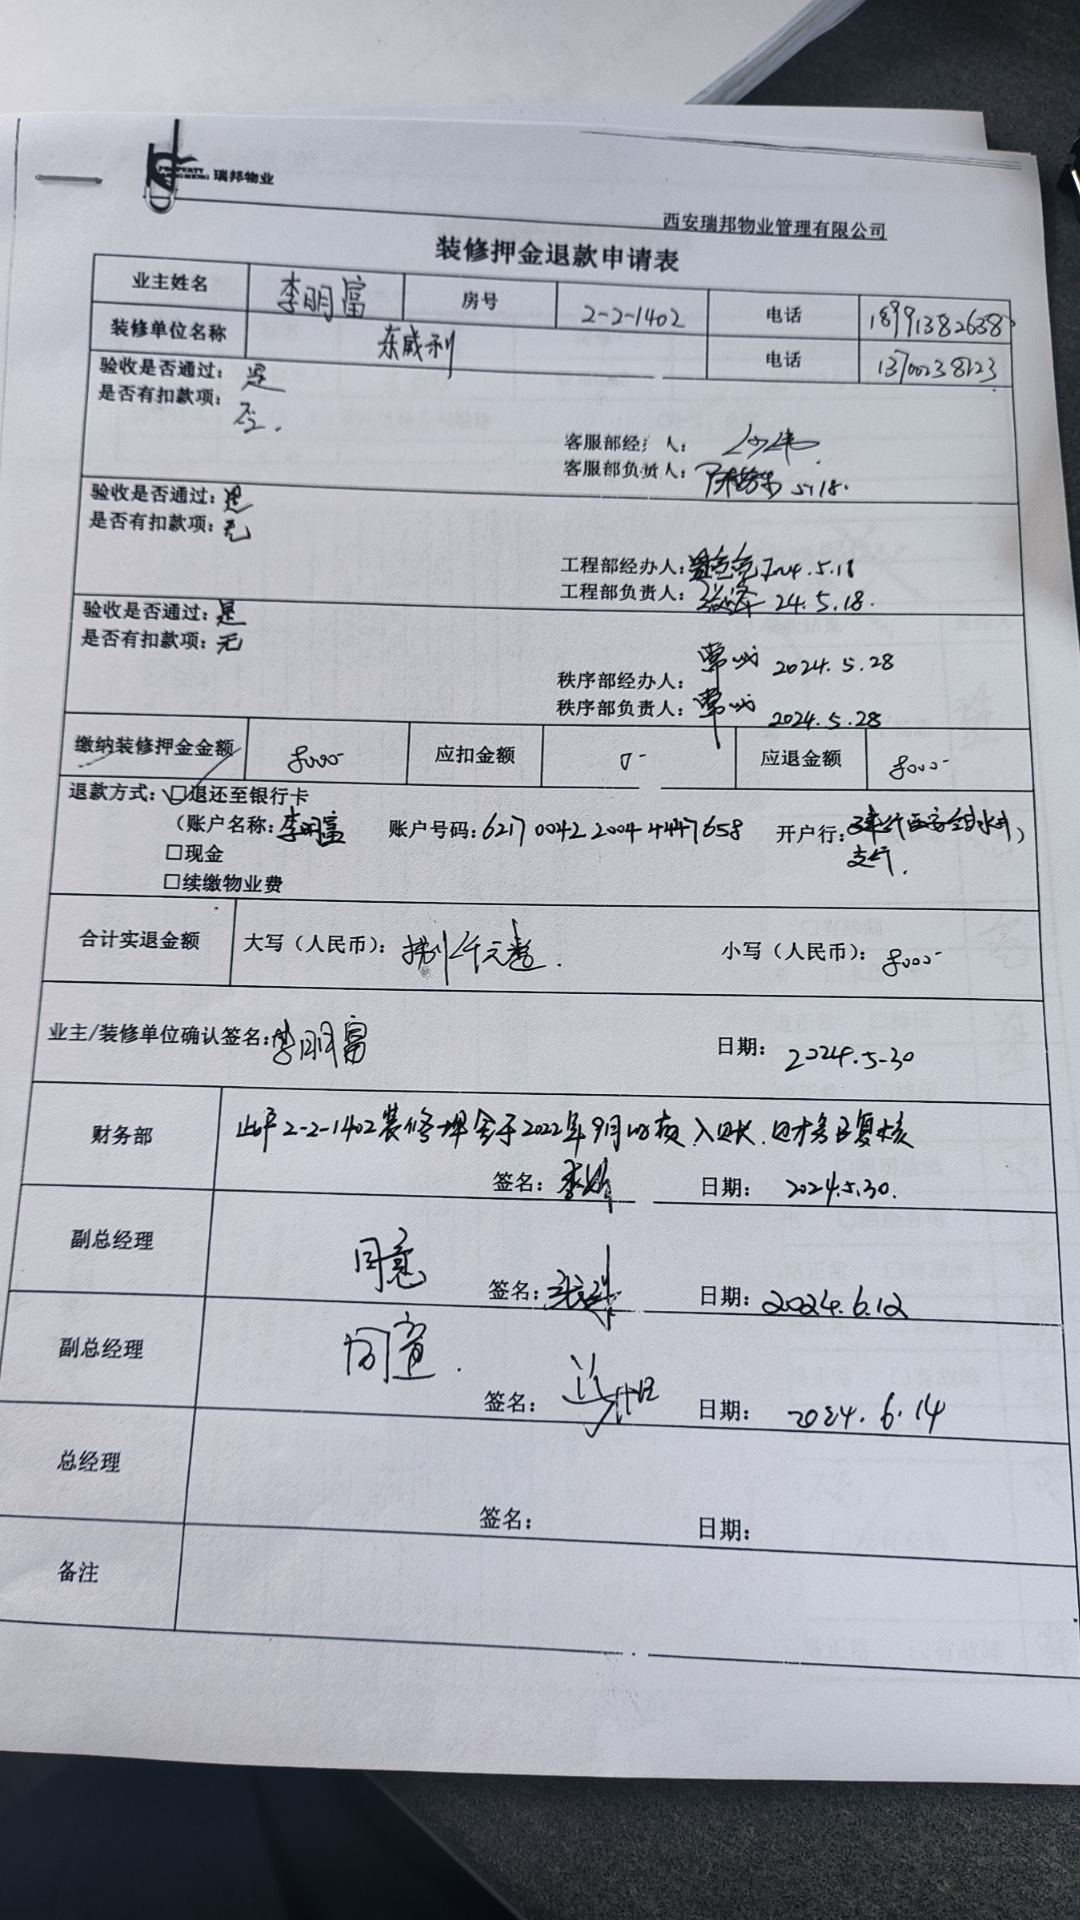 瑞邦物业
西安瑞邦物业管理有限公司
装修押金退款申请表
业主姓名 李明富 房号 2-2-1402 电话 18991382638
装修单位名称 东威利 电话 13700238123
验收是否通过：是
是否有扣款项：否.
客服部经 人：
客服部负责人： 5.18.
验收是否通过：是
是否有扣款项：无
工程部经办人： 2024.5.18
工程部负责人： 24.5.18.
验收是否通过：是
是否有扣款项：无
秩序部经办人： 2024.5.28
秩序部负责人： 2024.5.28
缴纳装修押金金额 8000- 应扣金额 0- 应退金额 8000-
退款方式：☑退还至银行卡
（账户名称：李明富 账户号码：6217 0042 2004 4447658 开户行：建行西安 支行.）
□现金
□续缴物业费
合计实退金额 大写（人民币）：捌仟元整. 小写（人民币）：8000-
业主/装修单位确认签名：李明富 日期：2024.5-30
财务部 此户2-2-1402装修押金于2022年9月 入账.财务已复核
签名： 日期：2024.5.30.
副总经理 同意 签名： 日期：2024.6.12
副总经理 同意. 签名： 日期：2024.6.14
总经理 签名： 日期：
备注